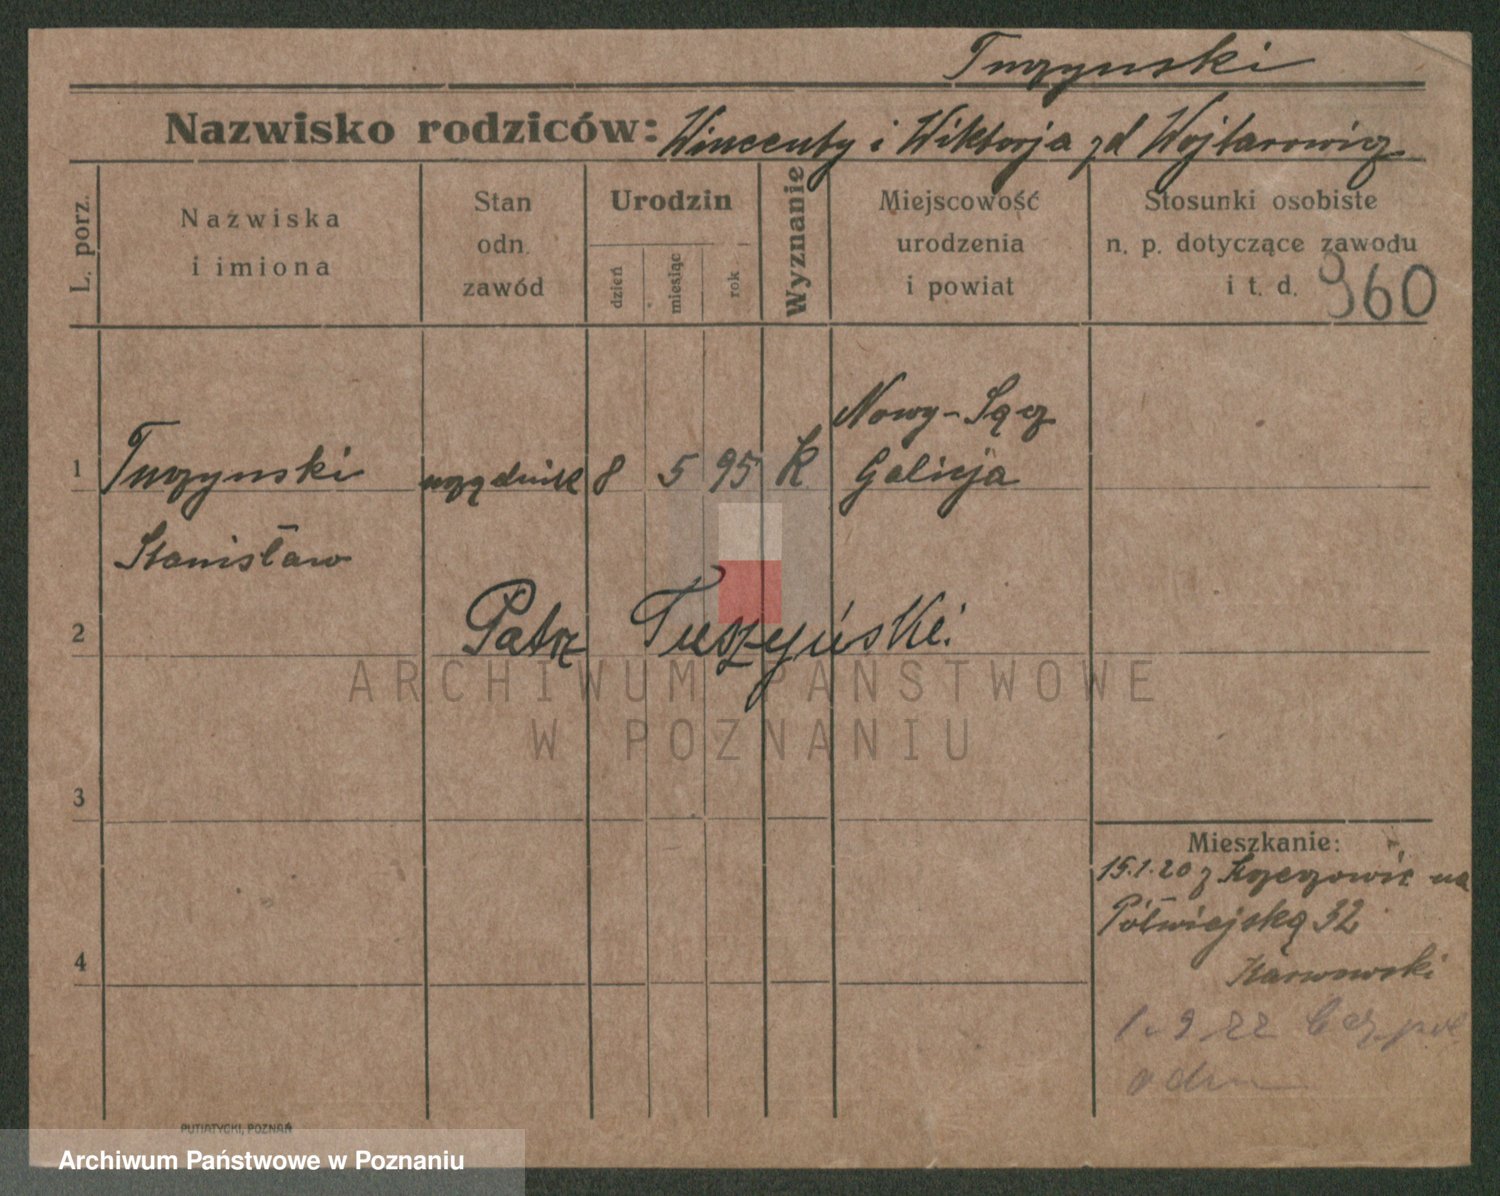 Turzynski
Nazwisko rodziców: Wincenty i Wiktorja zd Wojtarowicz
L. porz.
Nazwiska
i imiona
Stan
odn.
zawód
Urodzin
dzień
miesiąc
rok
Wyznanie
Miejscowość
urodzenia
i powiat
Stosunki osobiste
n. p. dotyczące zawodu
i t. d.
960
Nowy-Sącz
1 Turzynski urzędnik 8 5 95 K Galicja
Stanisław
2 Patrz Tuszyński.
ARCHIWUM PAŃSTWOWE
W POZNANIU
3
Mieszkanie:
15.1.20 z na
Półwiejską 32
4
Karwowski
1.9 22
PUTIATYCKI, POZNAŃ
Archiwum Państwowe w Poznaniu